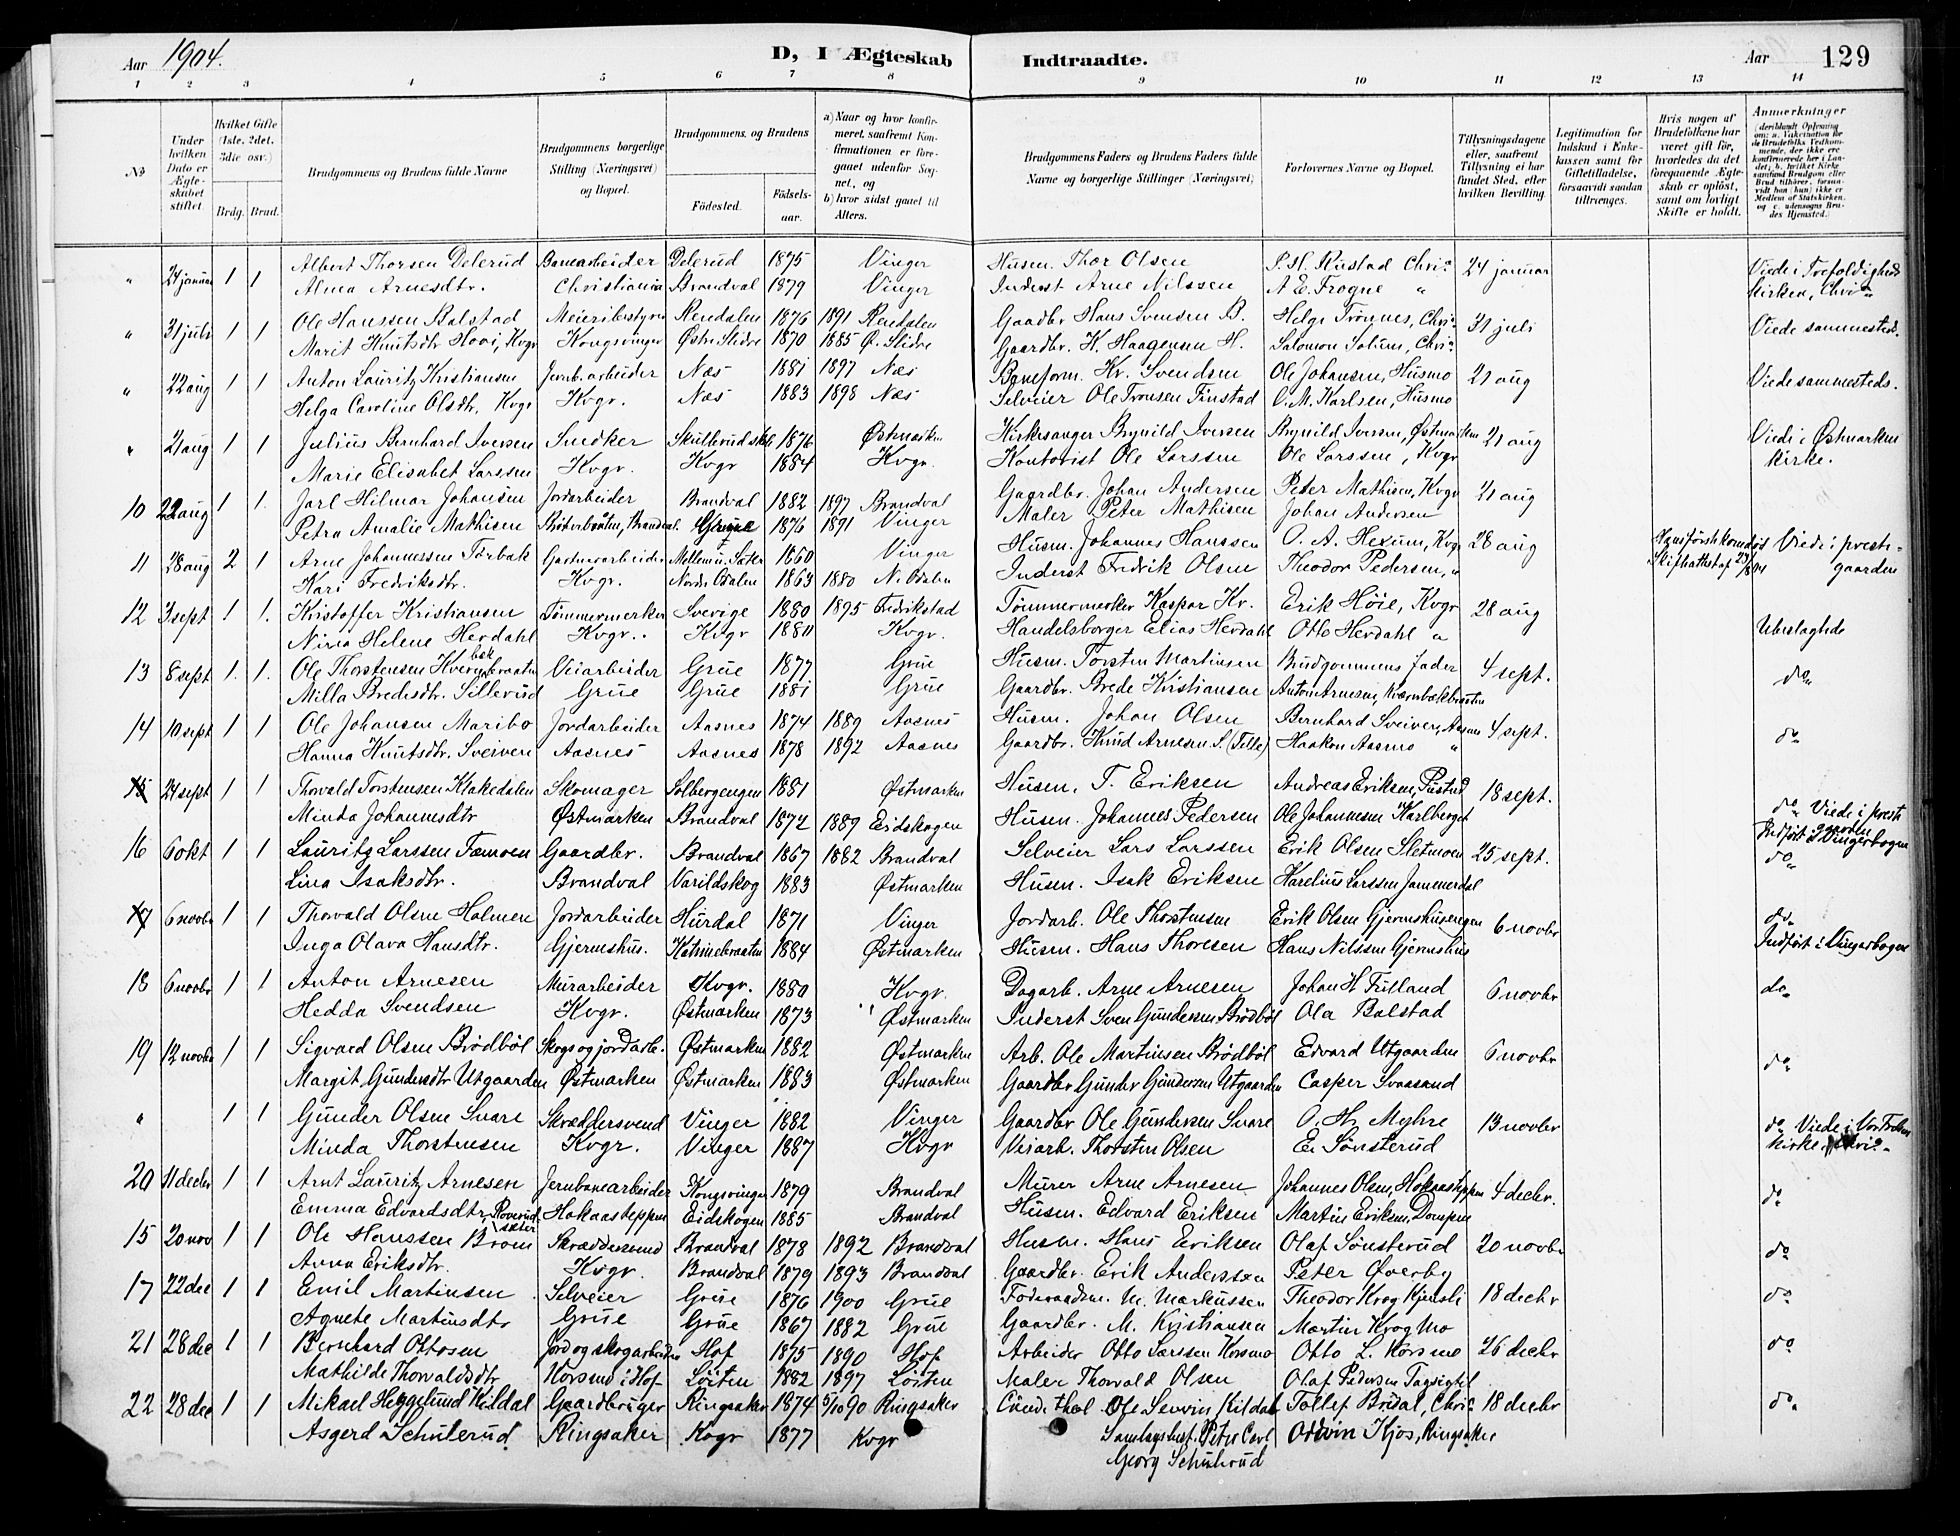 Aar 1904. D, I Ægteskab Indtraadte. Aar 129
1 2 3 4 5 6 7 8 9 10 11 12 13 14
No
Under hvilken Dato er Ægteskabet stiftet.
Hvilket Gifte (1ste, 2det, 3die osv.)
Brdg. Brud.
Brudgommens og Brudens fulde Navne
Brudgommens borgerlige Stilling (Næringsvei) og Bopæl.
Brudgommens og Brudens
Fødested. Fødselsaar.
a) Naar og hvor konfirmeret, saafremt Konfirmationen er foregaaet udenfor Sognet, og b) hvor sidst gaaet til Alters.
Brudgommens Faders og Brudens Faders fulde Navne og borgerlige Stillinger (Næringsvei)
Forlovernes Navne og Bopæl.
Tillysningsdagene eller, saafremt Tillysning ei har fundet Sted, efter hvilken Bevilling.
Legitimation for Indskud i Enkekassen samt for Giftetilladelse, forsaavidt saadan tiltrænges.
Hvis nogen af Brudefolkene har været gift før, hvorledes da det foregaaende Ægteskab er opløst, samt om lovligt Skifte er holdt.
Anmerkninger
" 24 januar 1 1 Albert Thorsen Delerud Banearbeider Delerud 1875 Vinger Husm. Thor Olsen P. H. Rustad Chria 24 januar Viede i Trefoldigheds
Alma Arnesdtr. Christiania Brandval 1879 Vinger Inderst Arne Nilssen A. E. Frogne " kirken, Chria
" 31 juli 1 1 Ole Hanssen Balstad Meieribestyrer Rendalen 1876 1891 Rendalen Gaardbr Hans Svensen B. Helge Trønnes, Chria 31 juli Viede sammesteds.
Marit Knutsdtr Hovi, Kvgr Kongsvinger Østre Slidre 1870 1885 Ø. Slidre Gaardbr. K. Haagensen H. Salomon Solum, Chria
" 22 aug 1 1 Anton Lauritz Kristiansen Jernb.arbeider Næs 1881 1897 Næs Baneform. Kr. Svendsen Ole Johansen, Husmo 21 aug Viede sammesteds.
Helga Caroline Olsdtr, Kvgr Kvgr. Næs 1883 1898 Næs Selveier Ole Tronsen Finstad O. M. Karlsen, Husmo
" 21 aug 1 1 Julius Bernhard Iversen Snedker 1876 Østmarken Kirkesanger Brynild Iversen Brynild Iversen, Østmarken 21 aug Viede i Østmarken
Marie Elisabet Larssen Kvgr. Kvgr 1884 Kvgr. Kontorist Ole Larssen Ole Larssen, Kvgr kirke.
10 22 aug 1 1 Jarl Hilmar Johansen Jordarbeider Brandval 1882 1897 Brandval Gaardbr. Johan Andersen Peter Mathisen, Kvgr 21 aug
Petra Amalie Mathisen Grue 1876 1891 Vinger Maler Peter Mathisen Johan Andersen
11 28 aug 2 1 Arne Johannessen Tørbak Gartnerarbeider 1860 Vinger Husm. Johannes Hanssen O. A. Hexum, Kvgr 28 aug Viede i preste-
Kari Fredriksdtr. Kvgr. Nordre Odalen 1863 1880 N. Odalen Inderst Fredrik Olsen Theodor Pedersen, " gaarden
12 3 sept 1 1 Kristoffer Kristiansen Tømmermerker Sverige 1880 1895 Fredrikstad Tømmermerker Kaspar Kr. Erik Høie, Kvgr 28 aug
Niria Helene Herdahl Kvgr. Kvgr 1880 Kvgr. Handelsborger Elias Herdahl Otto Herdahl " Ubeslægtede
13 8 sept 1 1 Ole Thorstensen Kvernbekbraaten Veiarbeider Grue 1877 Grue Husm. Torsten Martinsen Brudgommens fader 4 sept. do
Milla Bredesdtr. Sillerud Grue Grue 1881 Grue Gaardbr. Brede Kristiansen Anton Arnesen, Kvernbekbraaten
14 10 sept 1 1 Ole Johansen Maribo Jordarbeider Aasnes 1874 1889 Aasnes Husm. Johan Olsen Bernhard Sveiven, Aasnes 4 sept. do
Hanna Knutsdtr. Sveiven Aasnes Aasnes 1878 1892 Aasnes Gaardbr. Knud Arnesen S. (Tille) Haakon Aasmo "
15 24 sept 1 1 Thorvald Torstensen Klakedalen Skomager Solbergengen 1881 Østmarken Husm. T. Eriksen Andreas Eriksen, Pustad 18 sept. do Viede i preste
Minda Johannesdtr Østmarken Brandval 1872 1889 Eidskogen Husm. Johannes Pedersen Ole Johannesen Karlberget gaarden Indført i Vingerbogen
16 6 okt 1 1 Lauritz Larssen Tæmoen Gaardbr. Brandval 1867 1882 Brandval Selveier Lars Larssen Erik Olsen Sletmoen 25 sept. do
Lina Isaksdtr. Brandval Varildskog 1883 Østmarken Husm. Isak Eriksen Karelius Larssen Jammerdal
17 6 novbr 1 1 Thorvald Olsen Holmen Jordarbeider Hurdal 1871 Vinger Jordarb. Ole Thorstensen Erik Olsen Gjermshusengen 6 novbr do
Inga Olava Hansdtr. Gjermshus. 1884 Østmarken Husm. Hans Thoresen Hans Nilssen Gjermshus Indført i Vingerbogen
18 6 novbr 1 1 Anton Arnesen Murarbeider Kvgr. 1880 Kvgr. Dagarb. Arne Arnesen Johan H Fulland 6 novbr do
Hedda Svendsen Kvgr. Østmarken 1873 Østmarken Inderst Sven Gundersen Brødbøl Ola Balstad
19 12 novbr 1 1 Sigvard Olsen Brødbøl Skogs og jordarb. Østmarken 1882 Østmarken Arb. Ole Martinsen Brødbøl Edvard Utgaarden 6 novbr do
Margit Gundersdtr Utgaarden Østmarken Østmarken 1883 Østmarken Gaardbr Gunder Gundersen Utgaarden Casper Svaasand
" 1 1 Gunder Olsen Svare Skræddersvend Vinger 1882 Vinger Gaardbr Ole Gundersen Svare O. Hr. Myhre 13 novbr do Viede i Vor Frelsers
Minda Thorstensen Kvgr. Vinger 1887 Kvgr Veiarb. Thorsten Olsen E. Sønsterud kirke, Chria
20 11 decbr 1 1 Arnt Lauritz Arnesen Jernbanearbeider Kongsvinger 1879 Brandval Murer Arne Arnesen Johannes Olsen, Hokaasteppen 4 decbr. do
Emma Edvardsdtr, Roverudsæter Hokaasteppen Eidskogen 1885 Brandval Husm. Edvard Eriksen Martin Eriksen
15 20 nov 1 1 Ole Hanssen Brom Skræddersvend Brandval 1878 1892 Brandval Husm. Hans Eriksen Olaf Sønsterud 20 novbr do
Anna Eriksdtr. Kvgr. Brandval 1879 1893 Brandval Gaardbr. Erik Anderssen Peter Øverby
17 22 dec 1 1 Emil Martinsen Selveier Grue 1876 1900 Grue Føderaadsm. M. Markussen Theodor Krog Kjensli 18 decbr do
Agnete Martinsdtr Grue Grue 1867 1882 Grue Gaardbr. M. Kristiansen Martin Krog Mo
21 28 dec 1 1 Bernhard Ottosen Jord og skogarbeider Hof 1875 1890 Hof Arbeider Otto Larssen Korsmo Otto L. Korsmo 26 decbr do
Mathilde Thorvaldsdtr Korsmo i Hof Løiten 1882 1897 Løiten Maler Thorvald Olsen Olaf Pedersen
22 28 dec 1 1 Mikael Heggelund Kildal Gaardbruger Ringsaker 1874 5/10 90 Ringsaker Cand. theol Ole Servin Kildal Tollef Bridal, Chria 18 decbr do
Asgerd Schulerud Ringsaker Kvgr 1877 Kvgr Samlagsbest. Peter Carl Odvin Kjos, Ringsaker
Georg Schulerud